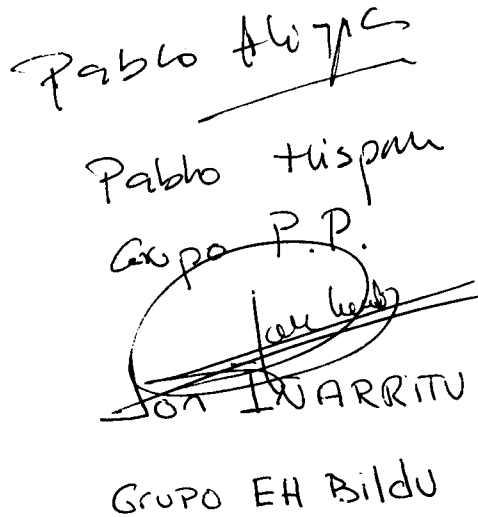 Pablo
Pablo Hispan
Grupo P.P.
Jon IÑARRITU
Grupo EH Bildu